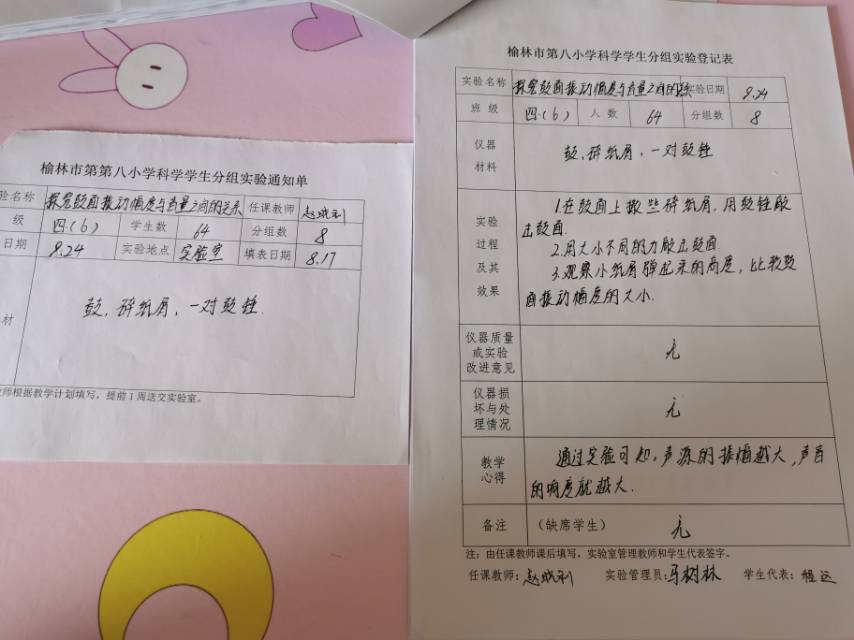 榆林市第第八小学科学学生分组实验通知单
验名称 探究鼓面振动幅度与音量之间的关系 任课教师
级 四(6) 学生数 64 分组数 8
日期 9.24 实验地点 实验室 填表日期 8.17
材 鼓，碎纸屑，一对鼓锤.
师根据教学计划填写，提前1周送交实验室。
榆林市第八小学科学学生分组实验登记表
实验名称 探究鼓面振动幅度与音量之间的关系 实验日期 9.24
班级 四(6) 人数 64 分组数 8
仪器
材料
鼓、碎纸屑、一对鼓锤
实验
过程
及其
效果
1.在鼓面上撒些碎纸屑，用鼓锤敲
击鼓面.
2.用大小不同的力敲击鼓面
3.观察小纸屑弹起来的高度，比较鼓
面振动幅度的大小.
仪器质量
或实验
改进意见
无
仪器损
坏与处
理情况
无
教学
心得
通过实验可知，声源的振幅越大，声音
的响度就越大.
备注 （缺席学生） 无
注：由任课教师课后填写，实验室管理教师和学生代表签字。
任课教师： 实验管理员：马树林 学生代表：程远